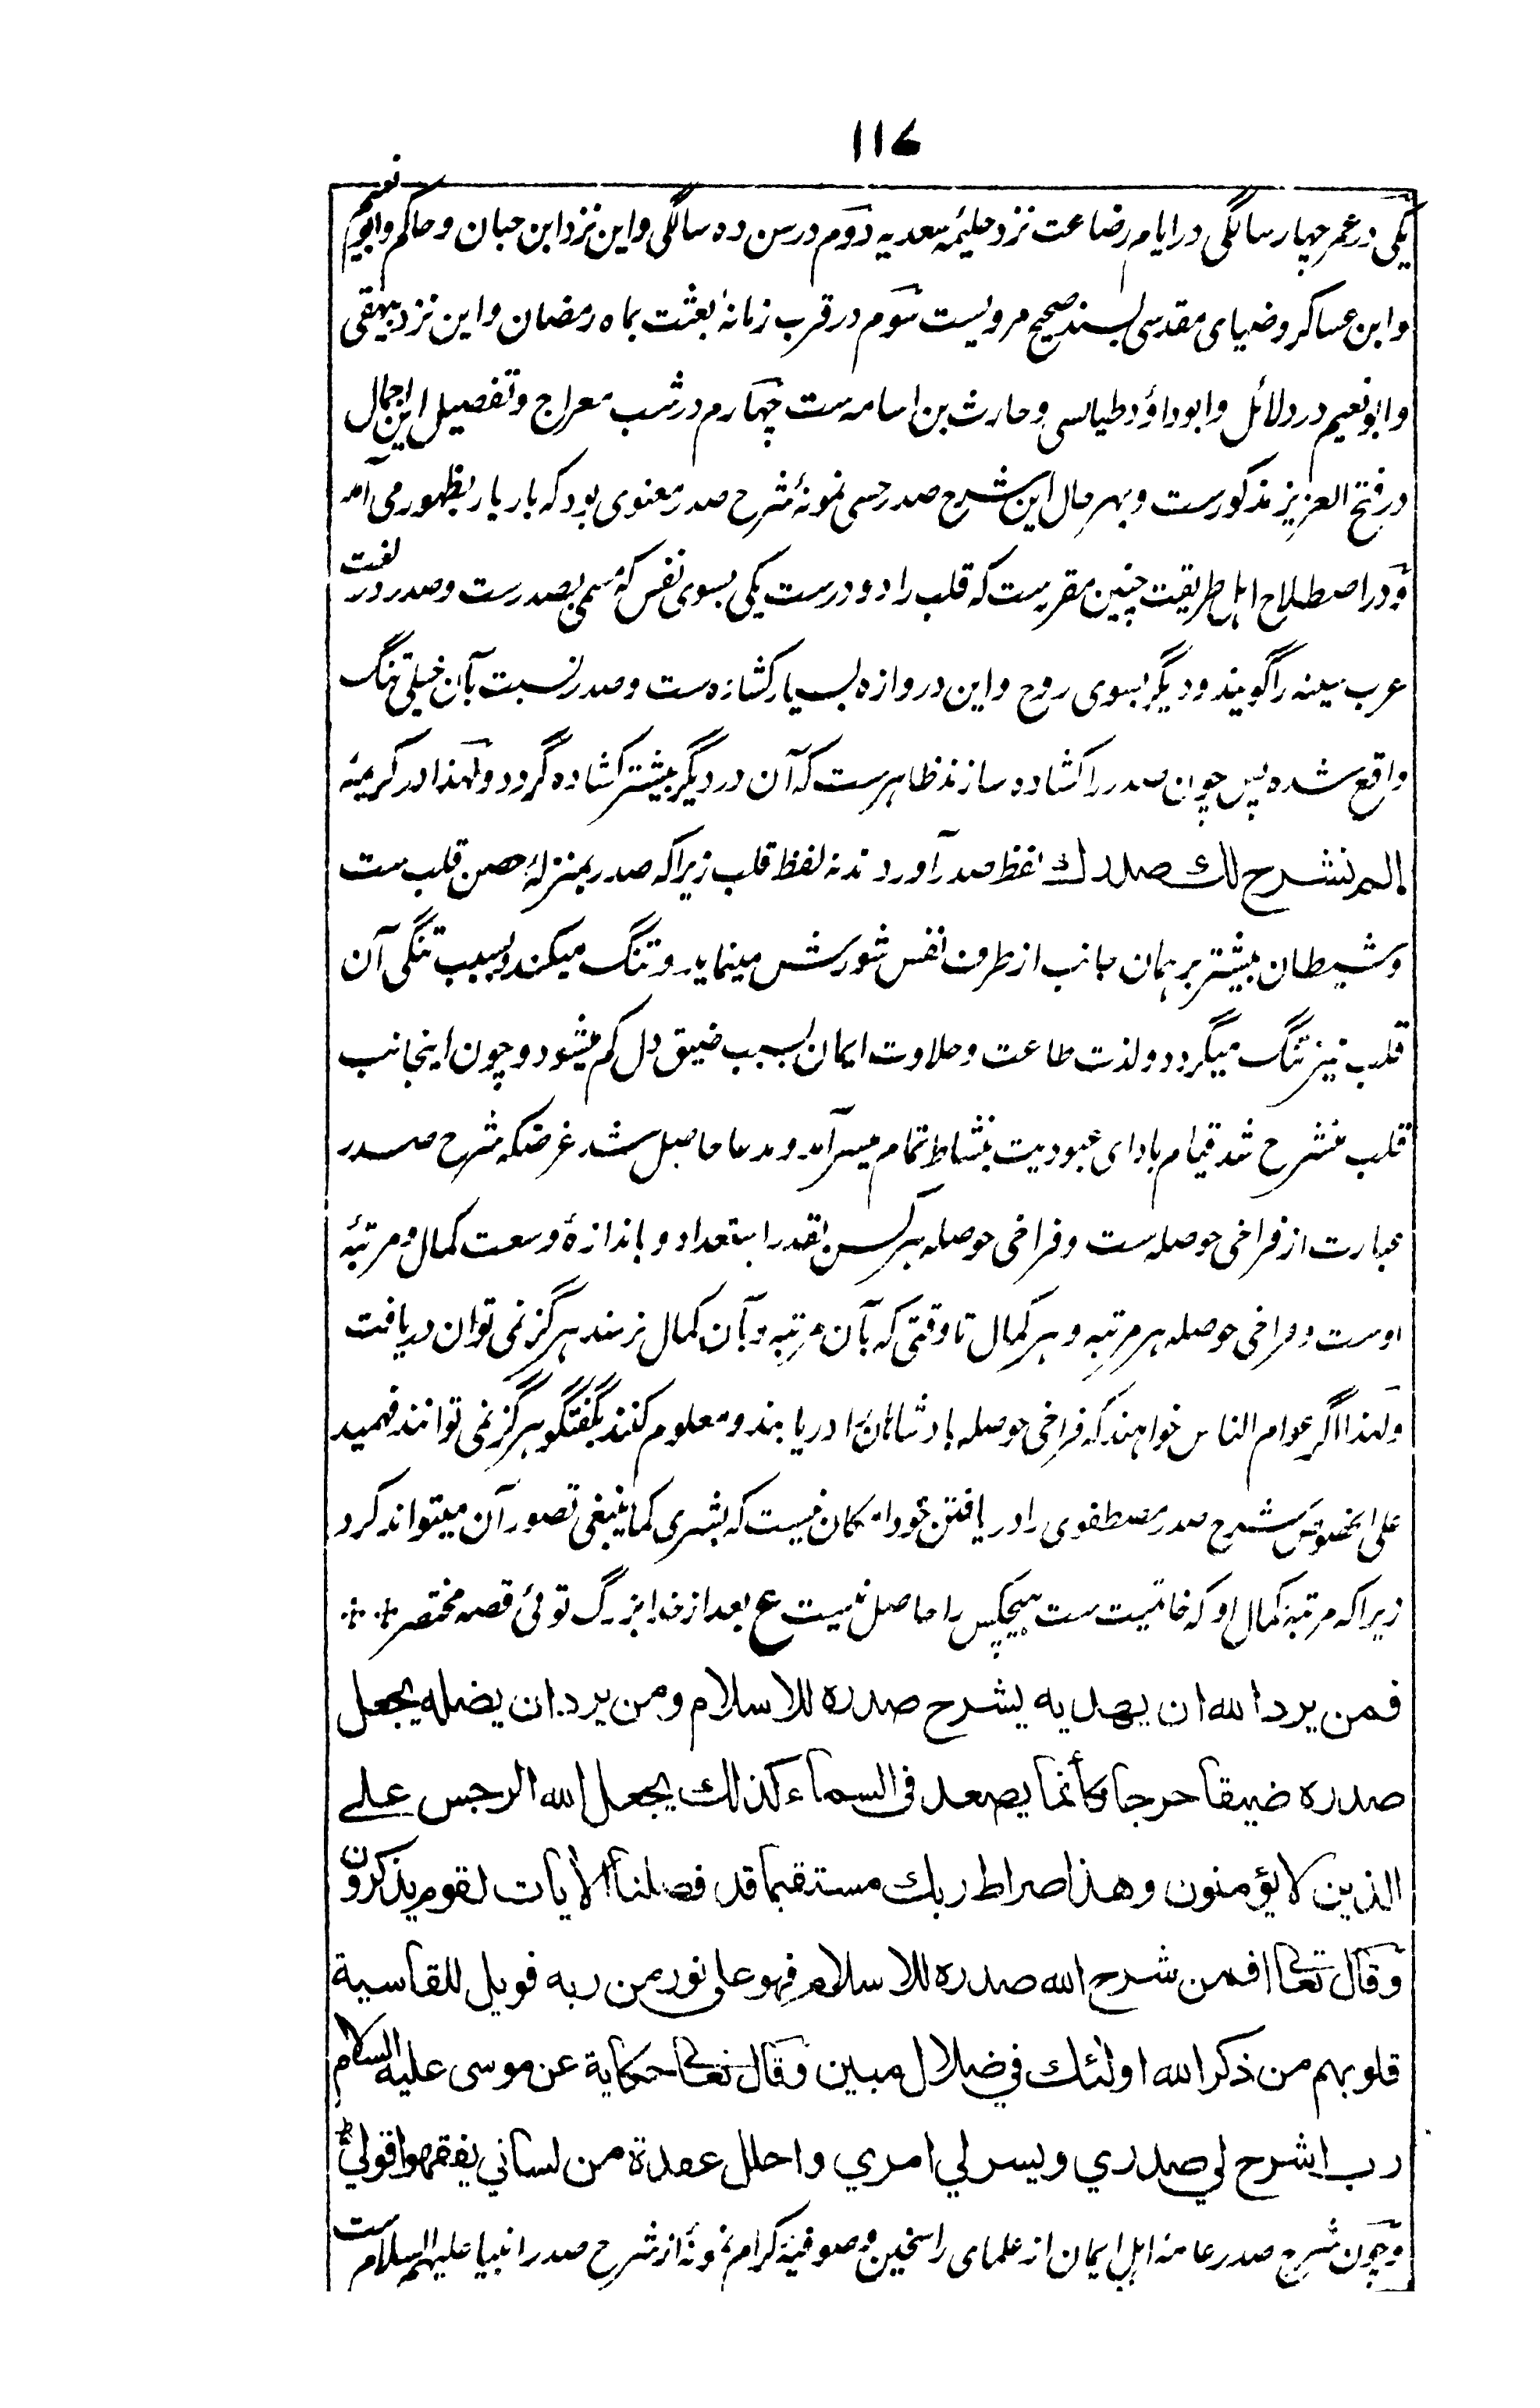 ۱۱۷
یکی در عمر چهار سالگی در ایام رضاعت نزد حلیمۂ سعدیه دوم در سن ده سالگی و این نزد ابن حبان و حاکم و ابو نعیم
و ابن عساکر و ضیای مقدسی بسند صحیح مرویست سوم در قرب زمانۂ بعثت بماه رمضان و این نزد بیهقی
و ابو نعیم در دلائل و ابو داؤد طیالسی و حارث بن اسامه ست چهارم در شب معراج و تفصیل این اجمال
در فتح العزیز مذکورست و بهر حال این شرح صدر حسی نمونۂ شرح صدر معنوی بود که بار بار بظهور می آمد
و در اصطلاح اهل طریقت چنین مقررست که قلب را دو درست یکی بسوی نفس که مسمی بصدرست و صدر در لغت
عرب سینه را گویند و دیگر بسوی روح و این دروازه بسیار کشاده ست و صدر نسبت بآن خیلی تنگ
واقع شده پس چون صدر را کشاده سازند ظاهرست که آن در دیگر بیشتر کشاده گردد و لهذا در کریمۂ
الم نشرح لك صدرك لفظ صدر آوردند نه لفظ قلب زیرا که صدر بمنزلۂ حصن قلب ست
و شیطان بیشتر بر همان جانب از طرف نفس شورش مینماید و تنگ میکند و بسبب تنگی آن
قلب نیز تنگ میگردد و لذت طاعت و حلاوت ایمان بسبب ضیق دل کم میشود و چون اینجانب
قلب منشرح شد قیام بادای عبودیت بنشاط تمام میسر آمد و مدعا حاصل شد غرضکه شرح صدر
عبارت از فراخی حوصله ست و فراخی حوصله هر کس بقدر استعداد و باندازۂ وسعت کمال و مرتبۂ
اوست و فراخی حوصله هر مرتبه و هر کمال تا وقتی که بآن مرتبه و بآن کمال نرسند هرگز نمی توان دریافت
و لهذا اگر عوام الناس خواهند که فراخی حوصله بادشاهان را دریابند و معلوم کنند بگفتگو هرگز نمی توانند فهمید
علی الخصوص شرح صدر مصطفوی را دریافتن خود امکان نیست که بشری کما ینبغی تصور آن میتواند کرد
زیرا که مرتبۂ کمال او که خاتمیت ست هیچکس را حاصل نیست ع بعد از خدا بزرگ توئی قصه مختصر
فمن يرد الله ان يهديه يشرح صدره للاسلام ومن يرد ان يضله يجعل
صدره ضيقا حرجا كأنما يصعد في السماء كذلك يجعل الله الرجس على
الذين لا يؤمنون وهذا صراط ربك مستقيما قد فصلنا الأيات لقوم يذكرون
وقال تعالى افمن شرح الله صدره للاسلام فهو على نور من ربه فويل للقاسية
قلوبهم من ذكر الله اولئك في ضلال مبين وقال تعالى حكاية عن موسى عليه السلام
رب اشرح لي صدري ويسر لي امري واحلل عقدة من لساني يفقهوا قولي
و چون شرح صدر عامۂ اهل ایمان از علمای راسخین و صوفیۂ کرام نمونۂ از شرح صدر انبیا علیهم السلام ست